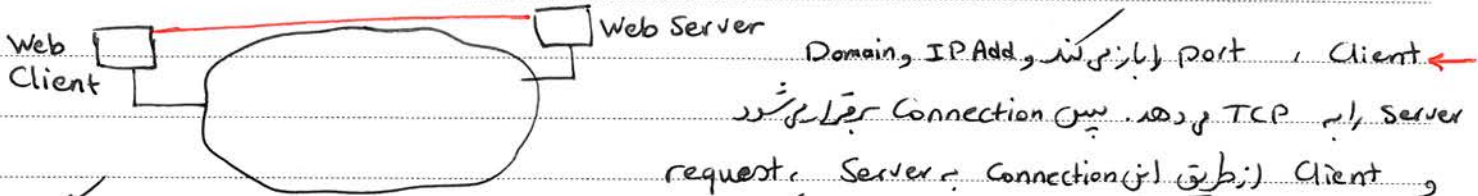 Web Client
Web Server
Client ، port را باز می‌کند و Domain و IP Add
Server را به TCP می‌دهد. سپس Connection برقرار می‌شود
و Client از طریق این Connection به Server ، request